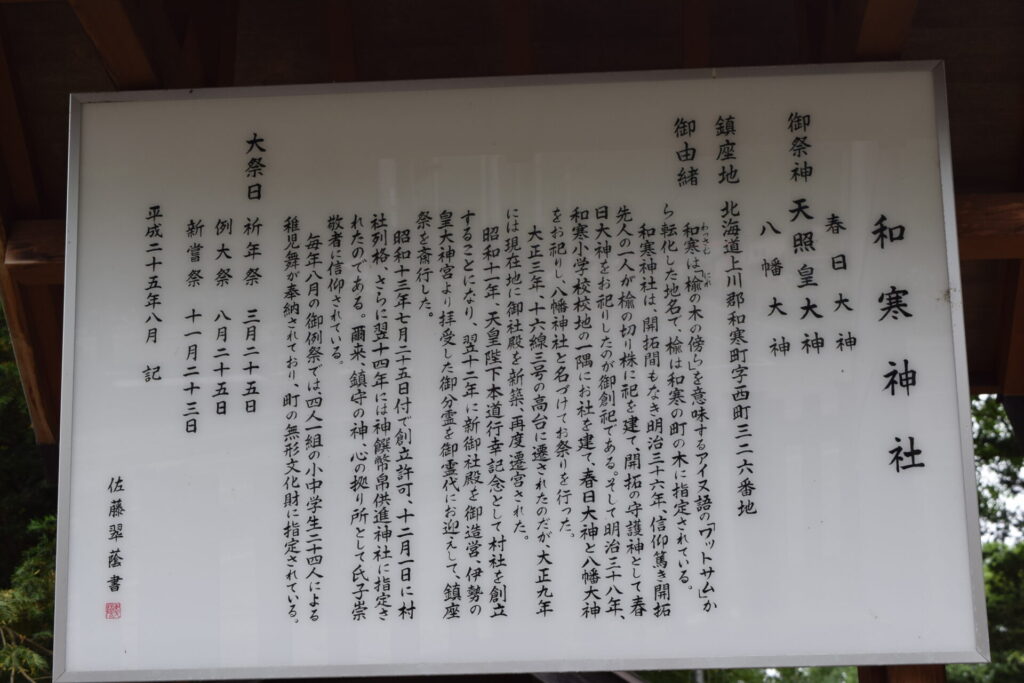 和寒神社
春日大神
御祭神 天照皇大神
八幡大神
鎮座地 北海道上川郡和寒町字西町三二六番地
御由緒
わっさむ にれ
和寒は、「楡の木の傍ら」を意味するアイヌ語の「ワットサム」か
ら転化した地名で、楡は和寒の町の木に指定されている。
和寒神社は、開拓間もなき明治三十六年、信仰篤き開拓
先人の一人が楡の切り株に祀を建て、開拓の守護神として春
日大神をお祀りしたのが御創祀である。そして明治三十八年、
和寒小学校校地の一隅にお社を建て、春日大神と八幡大神
をお祀りし、八幡神社と名づけてお祭りを行った。
大正三年、十六線三号の高台に遷されたのだが、大正九年
には現在地に御社殿を新築、再度遷宮された。
昭和十一年、天皇陛下本道行幸記念として村社を創立
することになり、翌十二年に新御社殿を御造営、伊勢の
皇大神宮より拝受した御分霊を御霊代にお迎えして、鎮座
祭を斎行した。
昭和十三年七月二十五日付で創立許可、十二月一日に村
社列格、さらに翌十四年には神饌幣帛供進神社に指定さ
れたのである。爾来、鎮守の神、心の拠り所として氏子崇
敬者に信仰されている。
毎年八月の御例祭では四人一組の小中学生二十四人による
稚児舞が奉納されており、町の無形文化財に指定されている。
大祭日 祈年祭 三月二十五日
例大祭 八月二十五日
新嘗祭 十一月二十三日
平成二十五年八月 記
佐藤翠蔭書